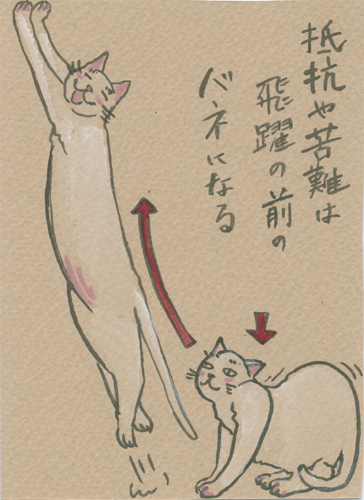 抵抗や苦難は
飛躍の前の
バネになる